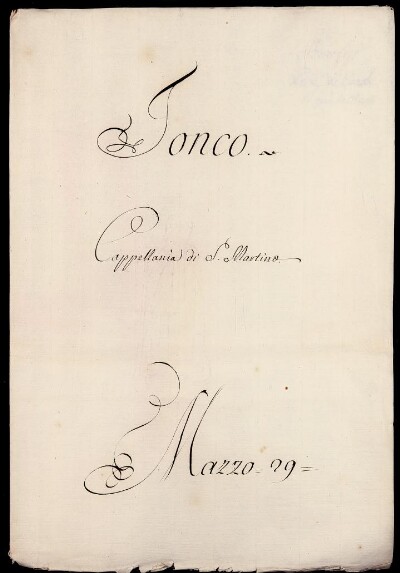 Tonco.
Cappellania di S. Martino
Mazzo. 29=